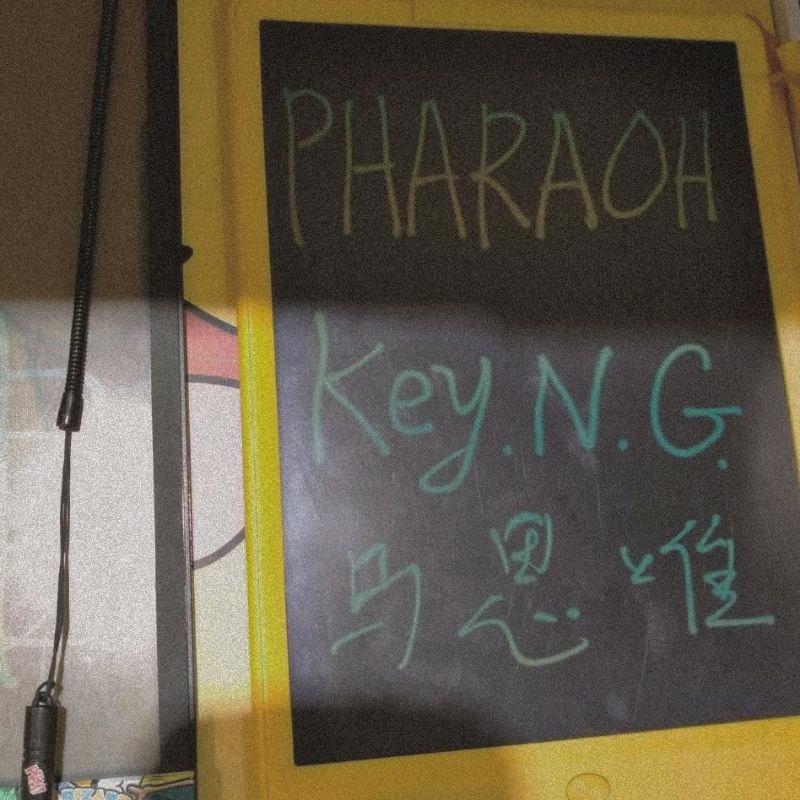 PHARAOH
Key.N.G.
马思唯